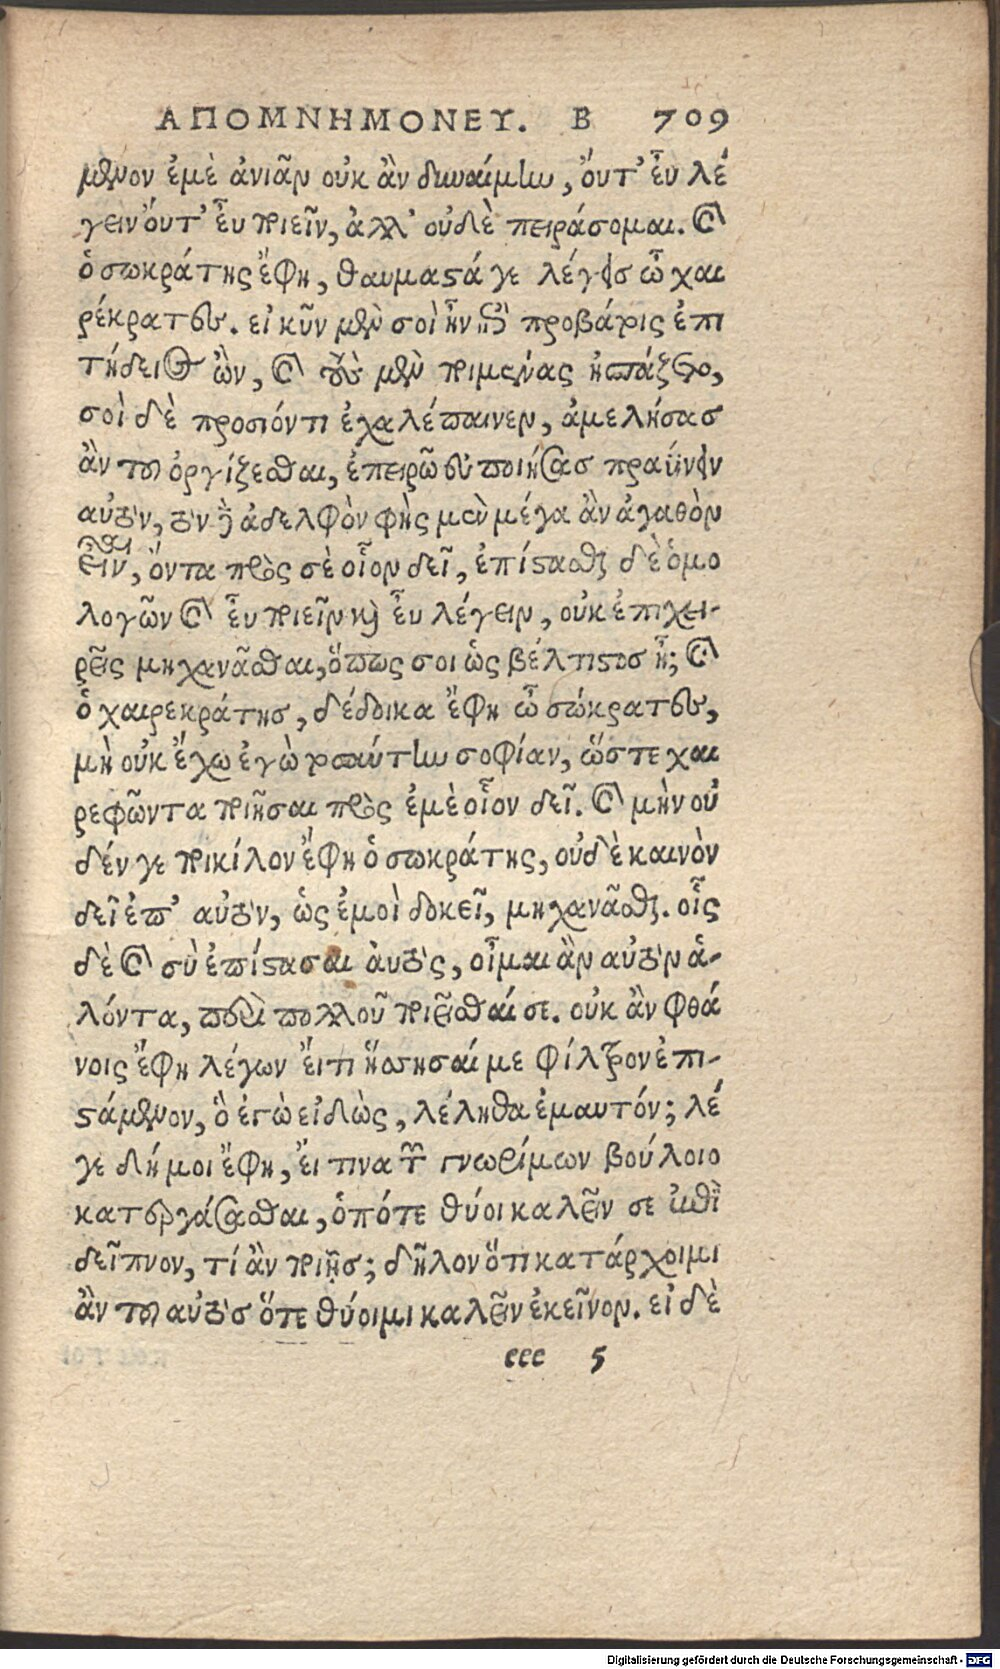 ΑΠΟΜΝΗΜΟΝΕΥ. Β 709
μενον ἐμὲ ἀνιᾶν οὐκ ἂν δυναίμην, ὄυτ' ἐυ λέ
γειν ὄυτ' ἐυ ποιεῖν, ἀλλ' οὐδὲ πειράσομαι. καὶ
ὁ σωκράτης ἔφη, θαυμαστά γε λέγεις ὦ χαι
ρέκρατες. εἰ κῦν μὲν σοὶ ἦν ἐπὶ προβάτοις ἐπι
τήδειος ὢν, καὶ τοὺς μὲν ποιμένας ἠσπάζετο,
σοὶ δὲ προσιόντι ἐχαλέπαινεν, ἀμελήσας
ἂν τοῦ ὀργίζεσθαι, ἐπειρῶ εὐποιήσας πραΰνειν
αὐτόν, τὸν δὲ ἀδελφὸν φὴς μὲν μέγα ἂν ἀγαθὸν
εἶναι, ὄντα πρὸς σὲ οἷον δεῖ, ἐπίστασθαι δὲ ὁμο
λογῶν καὶ ἐυ ποιεῖν καὶ ἐυ λέγειν, οὐκ ἐπιχει-
ρεῖς μηχανᾶσθαι, ὅπως σοι ὡς βέλτιστος ᾖ; καὶ
ὁ χαιρεκράτης, δέδοικα ἔφη ὦ σώκρατες,
μὴ οὐκ ἔχω ἐγὼ τοσαύτην σοφίαν, ὥστε χαι
ρεφῶντα ποιῆσαι πρὸς ἐμὲ οἷον δεῖ. καὶ μὴν οὐ
δέν γε ποικίλον ἔφη ὁ σωκράτης, οὐδὲ καινὸν
δεῖ ἐπ' αὐτόν, ὡς ἐμοὶ δοκεῖ, μηχανᾶσθαι. οἷς
δὲ καὶ σὺ ἐπίστασαι ἀυτὸς, οἶμαι ἂν αὐτὸν ἁ-
λόντα, περὶ πολλοῦ ποιεῖσθαί σε. οὐκ ἂν φθά
νοις ἔφη λέγων ἔιτι ᾔσθησαί με φίλτρον ἐπι-
στάμενον, ὃ ἐγὼ εἰδὼς, λέληθα ἐμαυτόν; λέ
γε δή μοι ἔφη, ἔι τινα τῶν γνωρίμων βούλοιο
κατεργάσασθαι, ὁπότε θύοι καλεῖν σε ἐπὶ
δεῖπνον, τί ἂν ποιῇς; δῆλον ὅτι κατάρχοιμι
ἂν τοῦ αὐτὸς ὅτε θύοιμι καλεῖν ἐκεῖνον. εἰ δὲ
eee 5
Digitalisierung gefördert durch die Deutsche Forschungsgemeinschaft - DFG